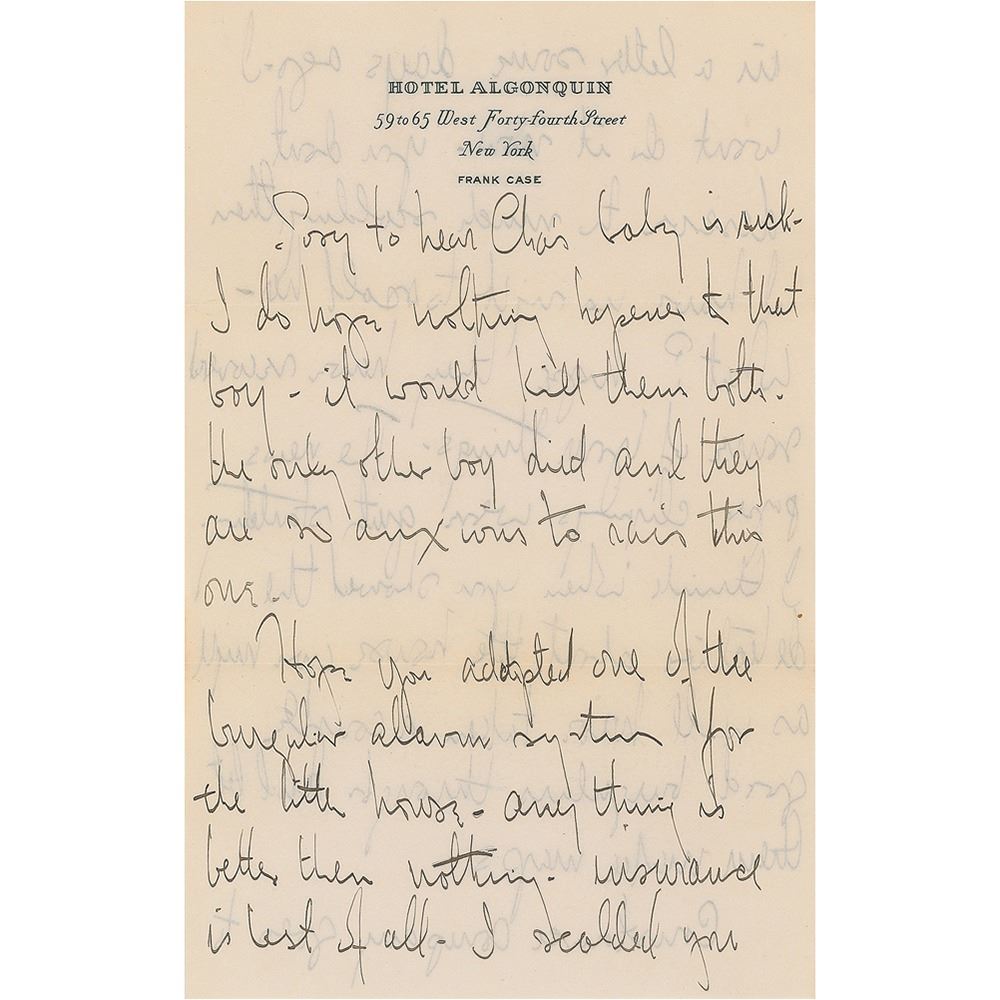 HOTEL ALGONQUIN
59 to 65 West Forty-fourth Street
New York
FRANK CASE
Sory to hear Chas baby is sick-
I do hope nothing hapenes to that
boy - it would kill them both.
the only other boy died and they
are so anxious to rais this
one.
Hope you adopted one of the
burgular alarm system for
the little house - any thing is
better then nothing - insurance
is best of all - I scolded you